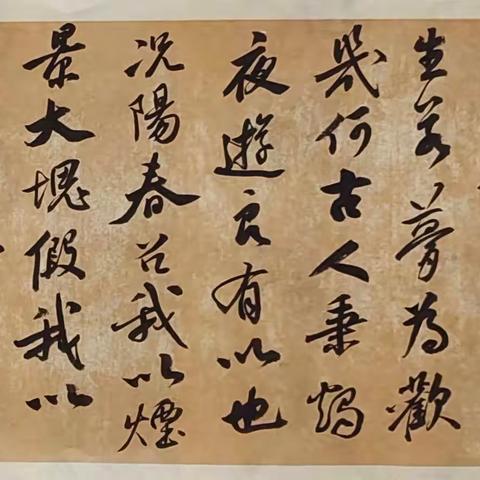 生若夢為歡
幾何古人秉燭
夜遊良有以也
況陽春召我以煙
景大塊假我以